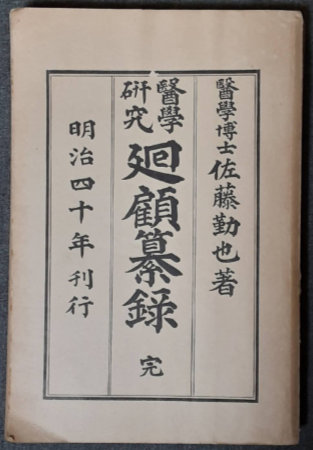 醫學博士佐藤勤也著
醫學研究廻顧纂錄 完
明治四十年刊行